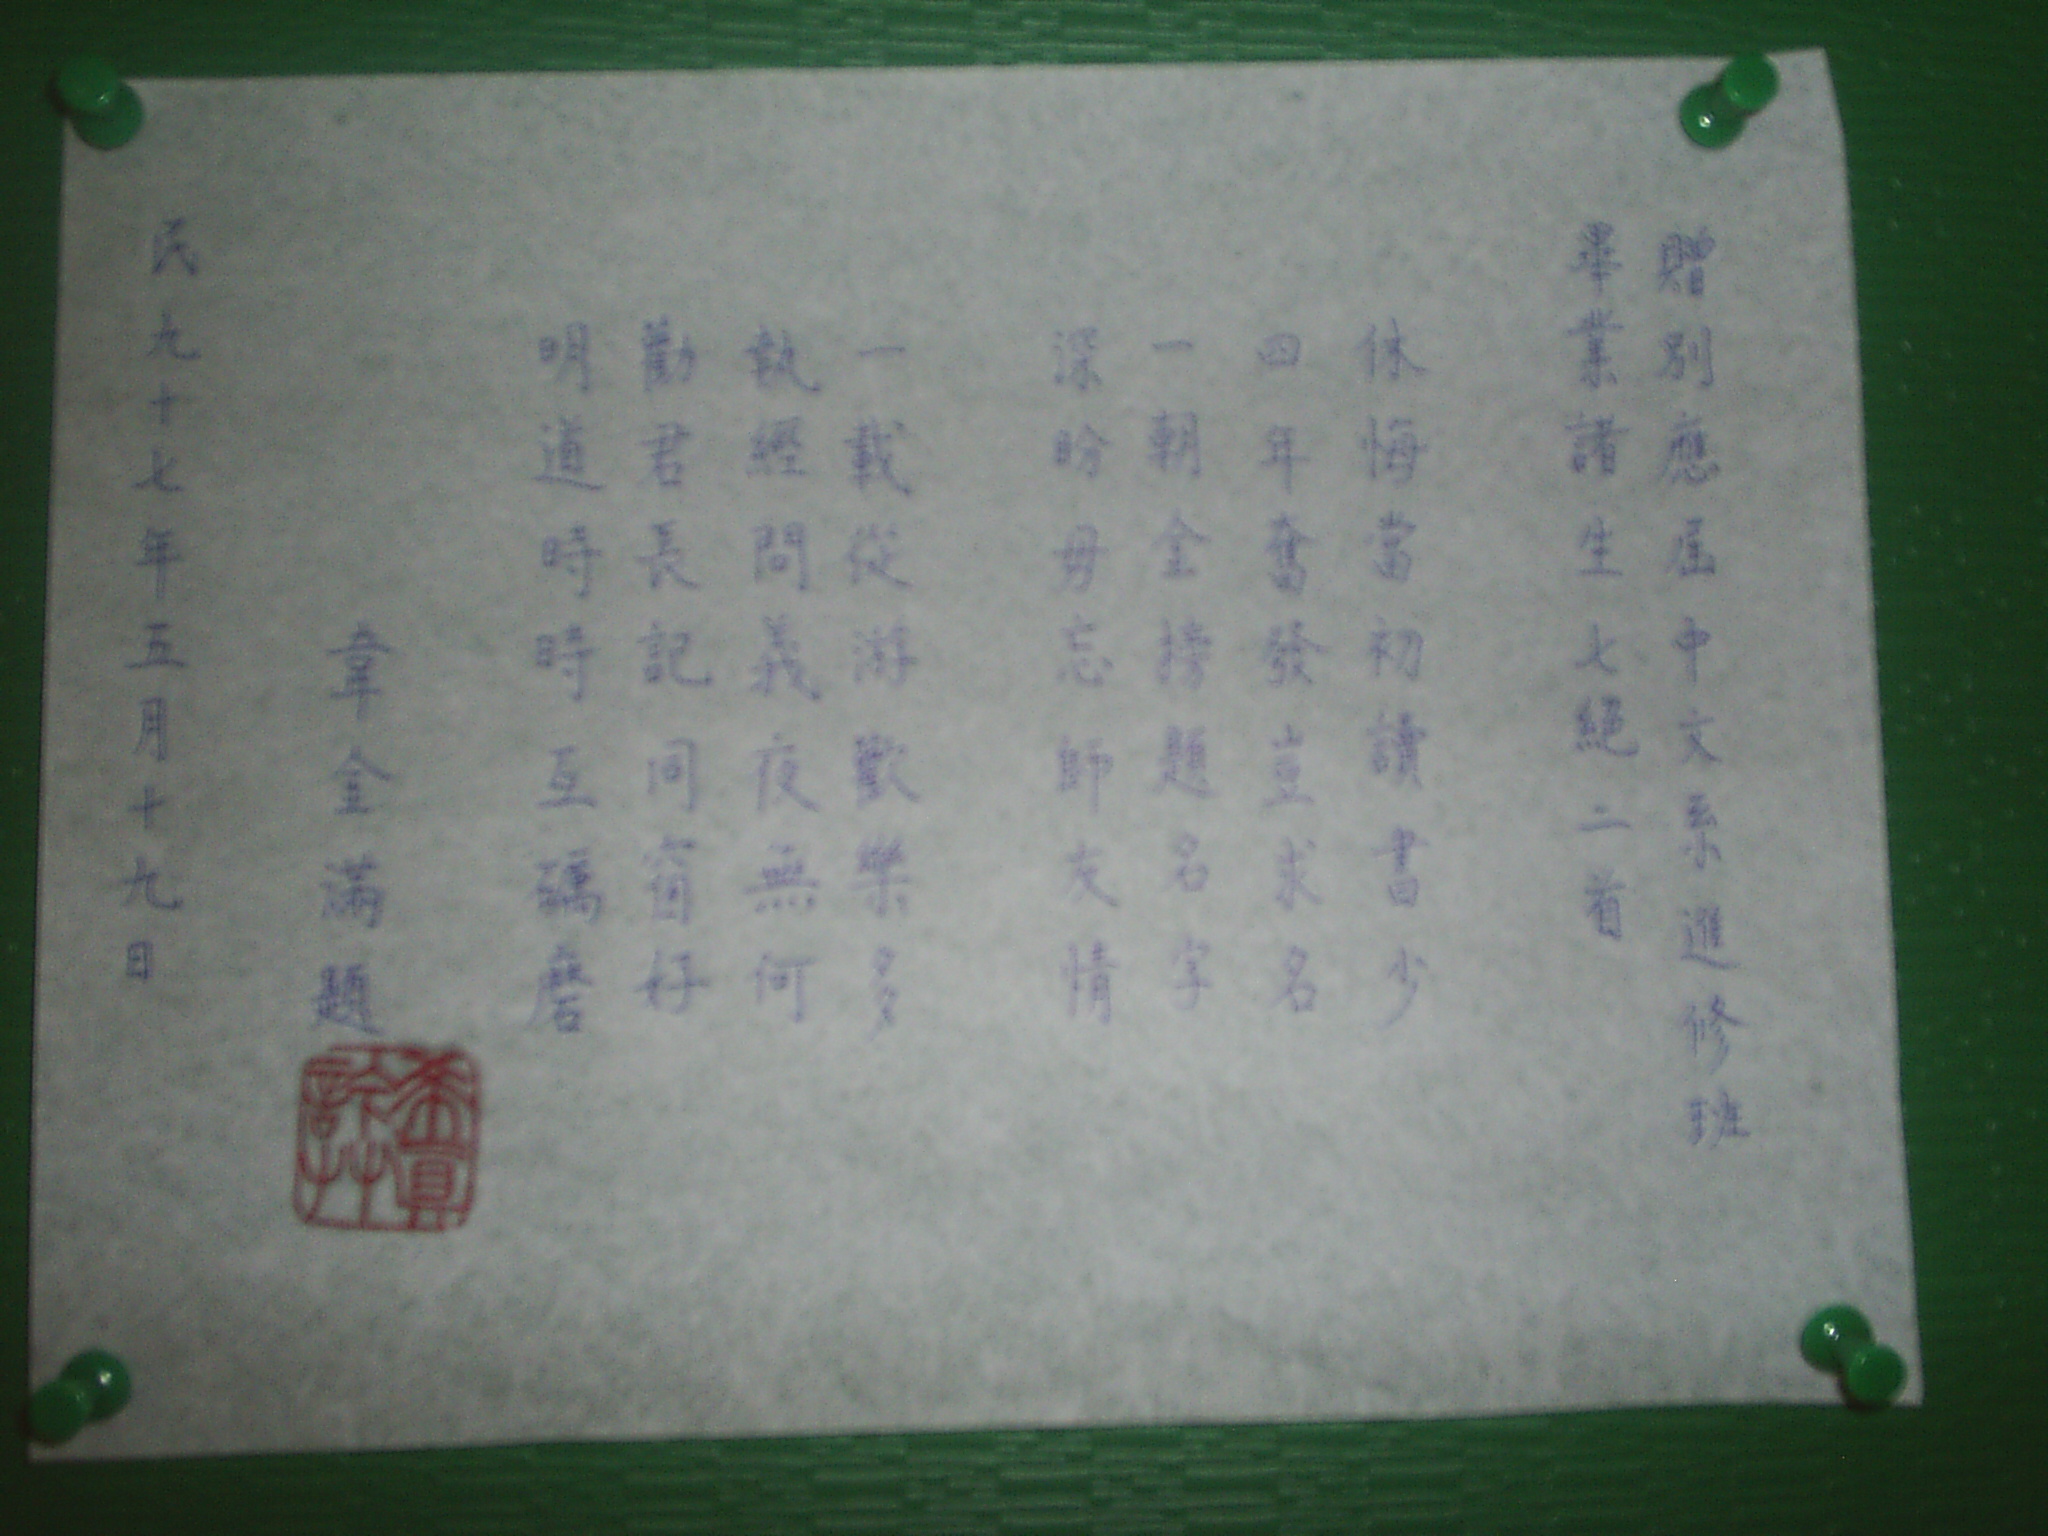 贈別應屆中文系進修班
畢業諸生七絕二首
休悔當初讀書少
四年奮發豈求名
一朝金榜題名字
深盼毋忘師友情
一載從游歡樂多
執經問義夜無何
勸君長記同窗好
明道時時互礪磨
韋金滿題
民九十七年五月十九日